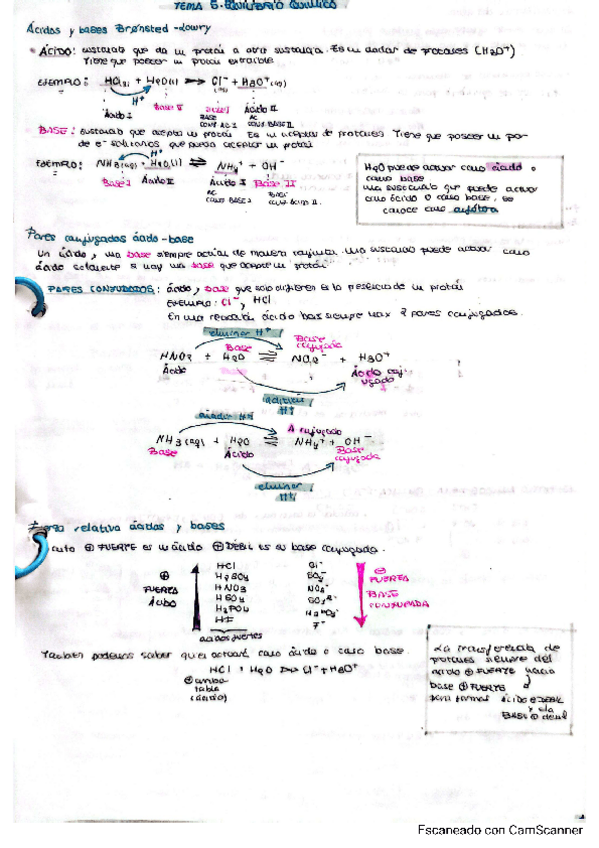 TEMA 6. EQUILIBRIO QUÍMICO
Ácidos y bases Brønsted-Lowry
ÁCIDO: sustancia que da un protón a otra sustancia. Es un dador de protones (H3O+)
Tiene que poseer un protón extraíble
EJEMPLO: HCl(g) + H2O(l) → Cl- + H3O+(aq)
H+
Ácido I Base II Base I Ácido II
BASE: sustancia que acepta un protón Es un aceptor de protones Tiene que poseer un par
de e- solitarios que pueda aceptar un protón
EJEMPLO: NH3(aq) + H2O(l) ⇌ NH4+ + OH-
H+
Base I Ácido II Ácido I Base II
H2O puede actuar como ácido o
como base
una sustancia que puede actuar
como ácido o como base, se
conoce como anfótera
Pares conjugados ácido-base
Un ácido y una base siempre actúan de manera conjunta. Una sustancia puede actuar como
ácido solamente si hay una base que acepte un protón
PARES CONJUGADOS: ácido y base que solo difieren en la presencia de un protón
EJEMPLO: Cl-, HCl
En una reacción ácido base siempre hay 2 pares conjugados.
eliminar H+
Base Base conjugada
HNO2 + H2O ⇌ NO2- + H3O+
Ácido Ácido conjugado
adición H+
añadir H+
A conjugado
NH3(aq) + H2O ⇌ NH4+ + OH-
Base Ácido Base conjugada
eliminar H+
Fuerza relativa ácidos y bases
Cuanto ⊕ FUERTE es un ácido ⊕ DÉBIL es su base conjugada.
⊕ FUERZA ÁCIDO
HCl
H2SO4
HNO3
H3PO4
HF
ácidos fuertes
Cl-
NO3-
SO4 2-
F-
⊕ FUERZA BASE CONJUGADA
También podemos saber quien actuará como ácido o como base.
HCl + H2O → Cl- + H3O+
(ácido)
La transferencia de
protones siempre del
ácido ⊕ FUERTE hacia
base ⊕ FUERTE
para formar ácido ⊕ DEBIL
y la
BASE ⊕ debil
Escaneado con CamScanner